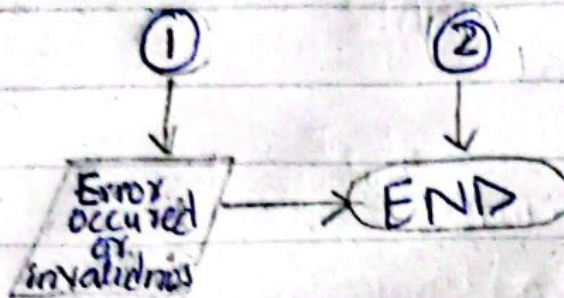 1
2
Error
occured
or
invalid nos
END